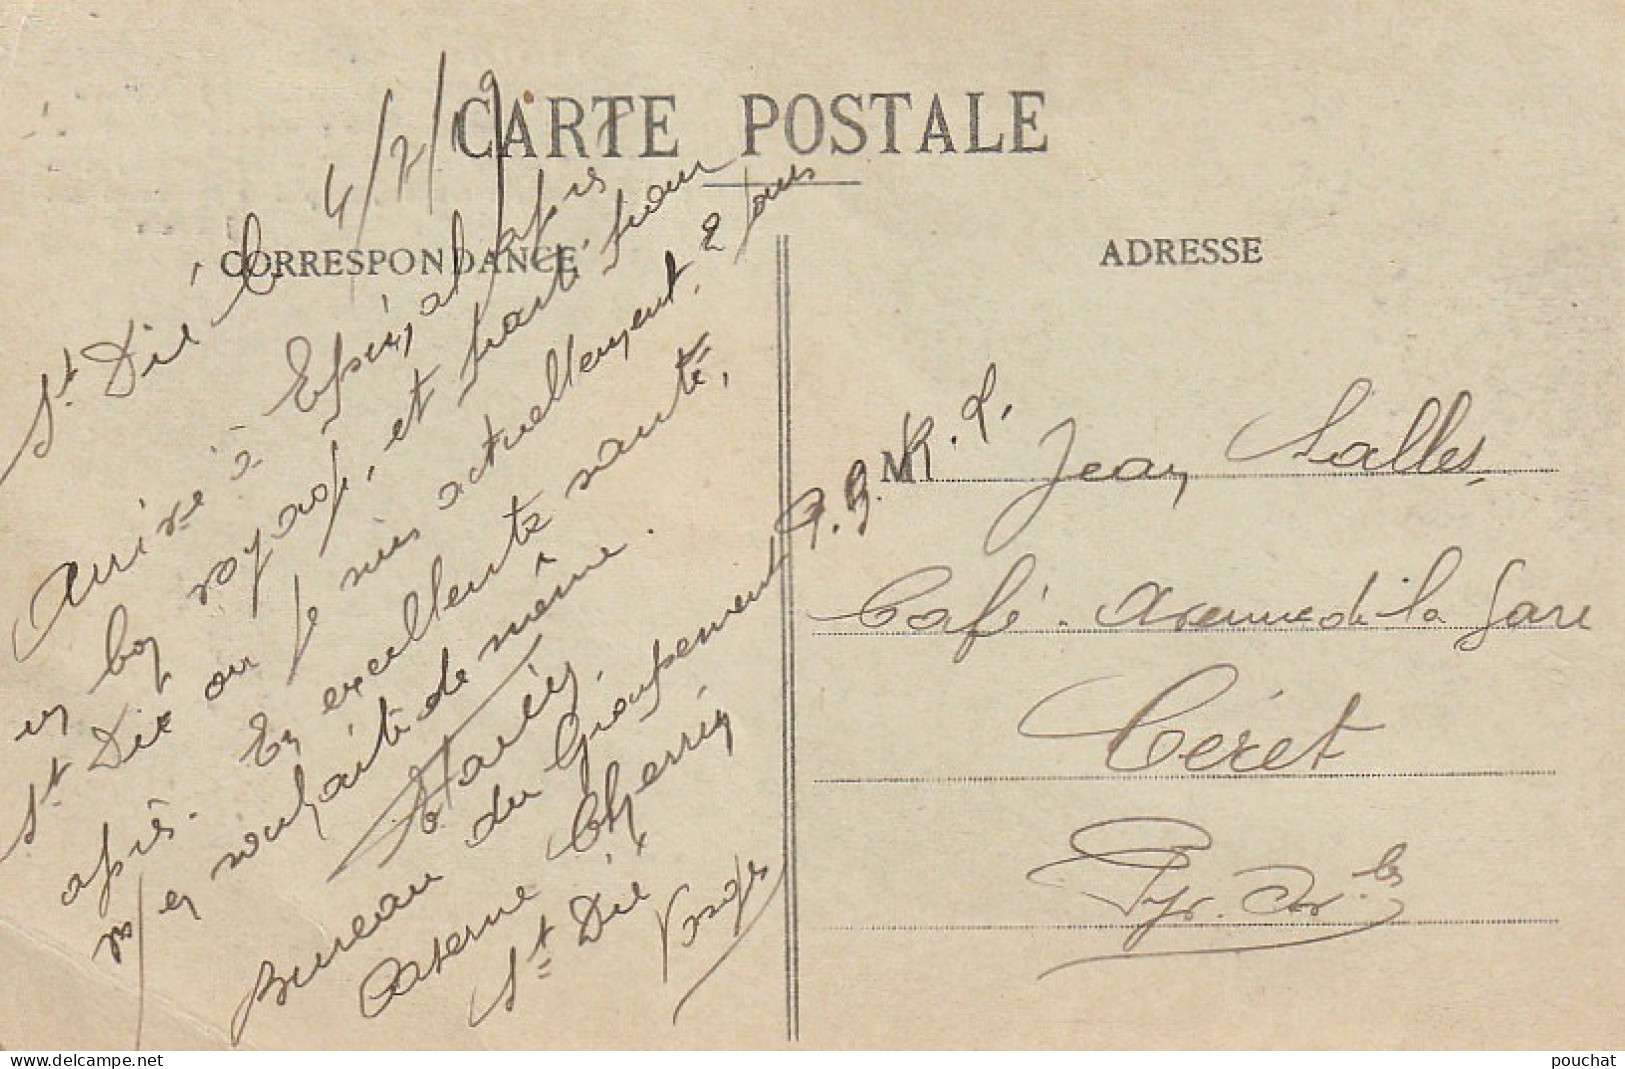 CARTE POSTALE
CORRESPONDANCE
ADRESSE
St. Dié le 4/7/19
Arrivé à Epinal après
un bon voyage, et parti pour
St Dié ou je suis actuellement, 2 jours
après. En excellente santé,
souhaite de même.
Bureau du Groupement
Caserne Kherrin
St Dié
Vosges
M. Jean Salles
Café. Avenue de la Gare
Céret
Pyr. Or.les
pouchat
www.delcampe.net